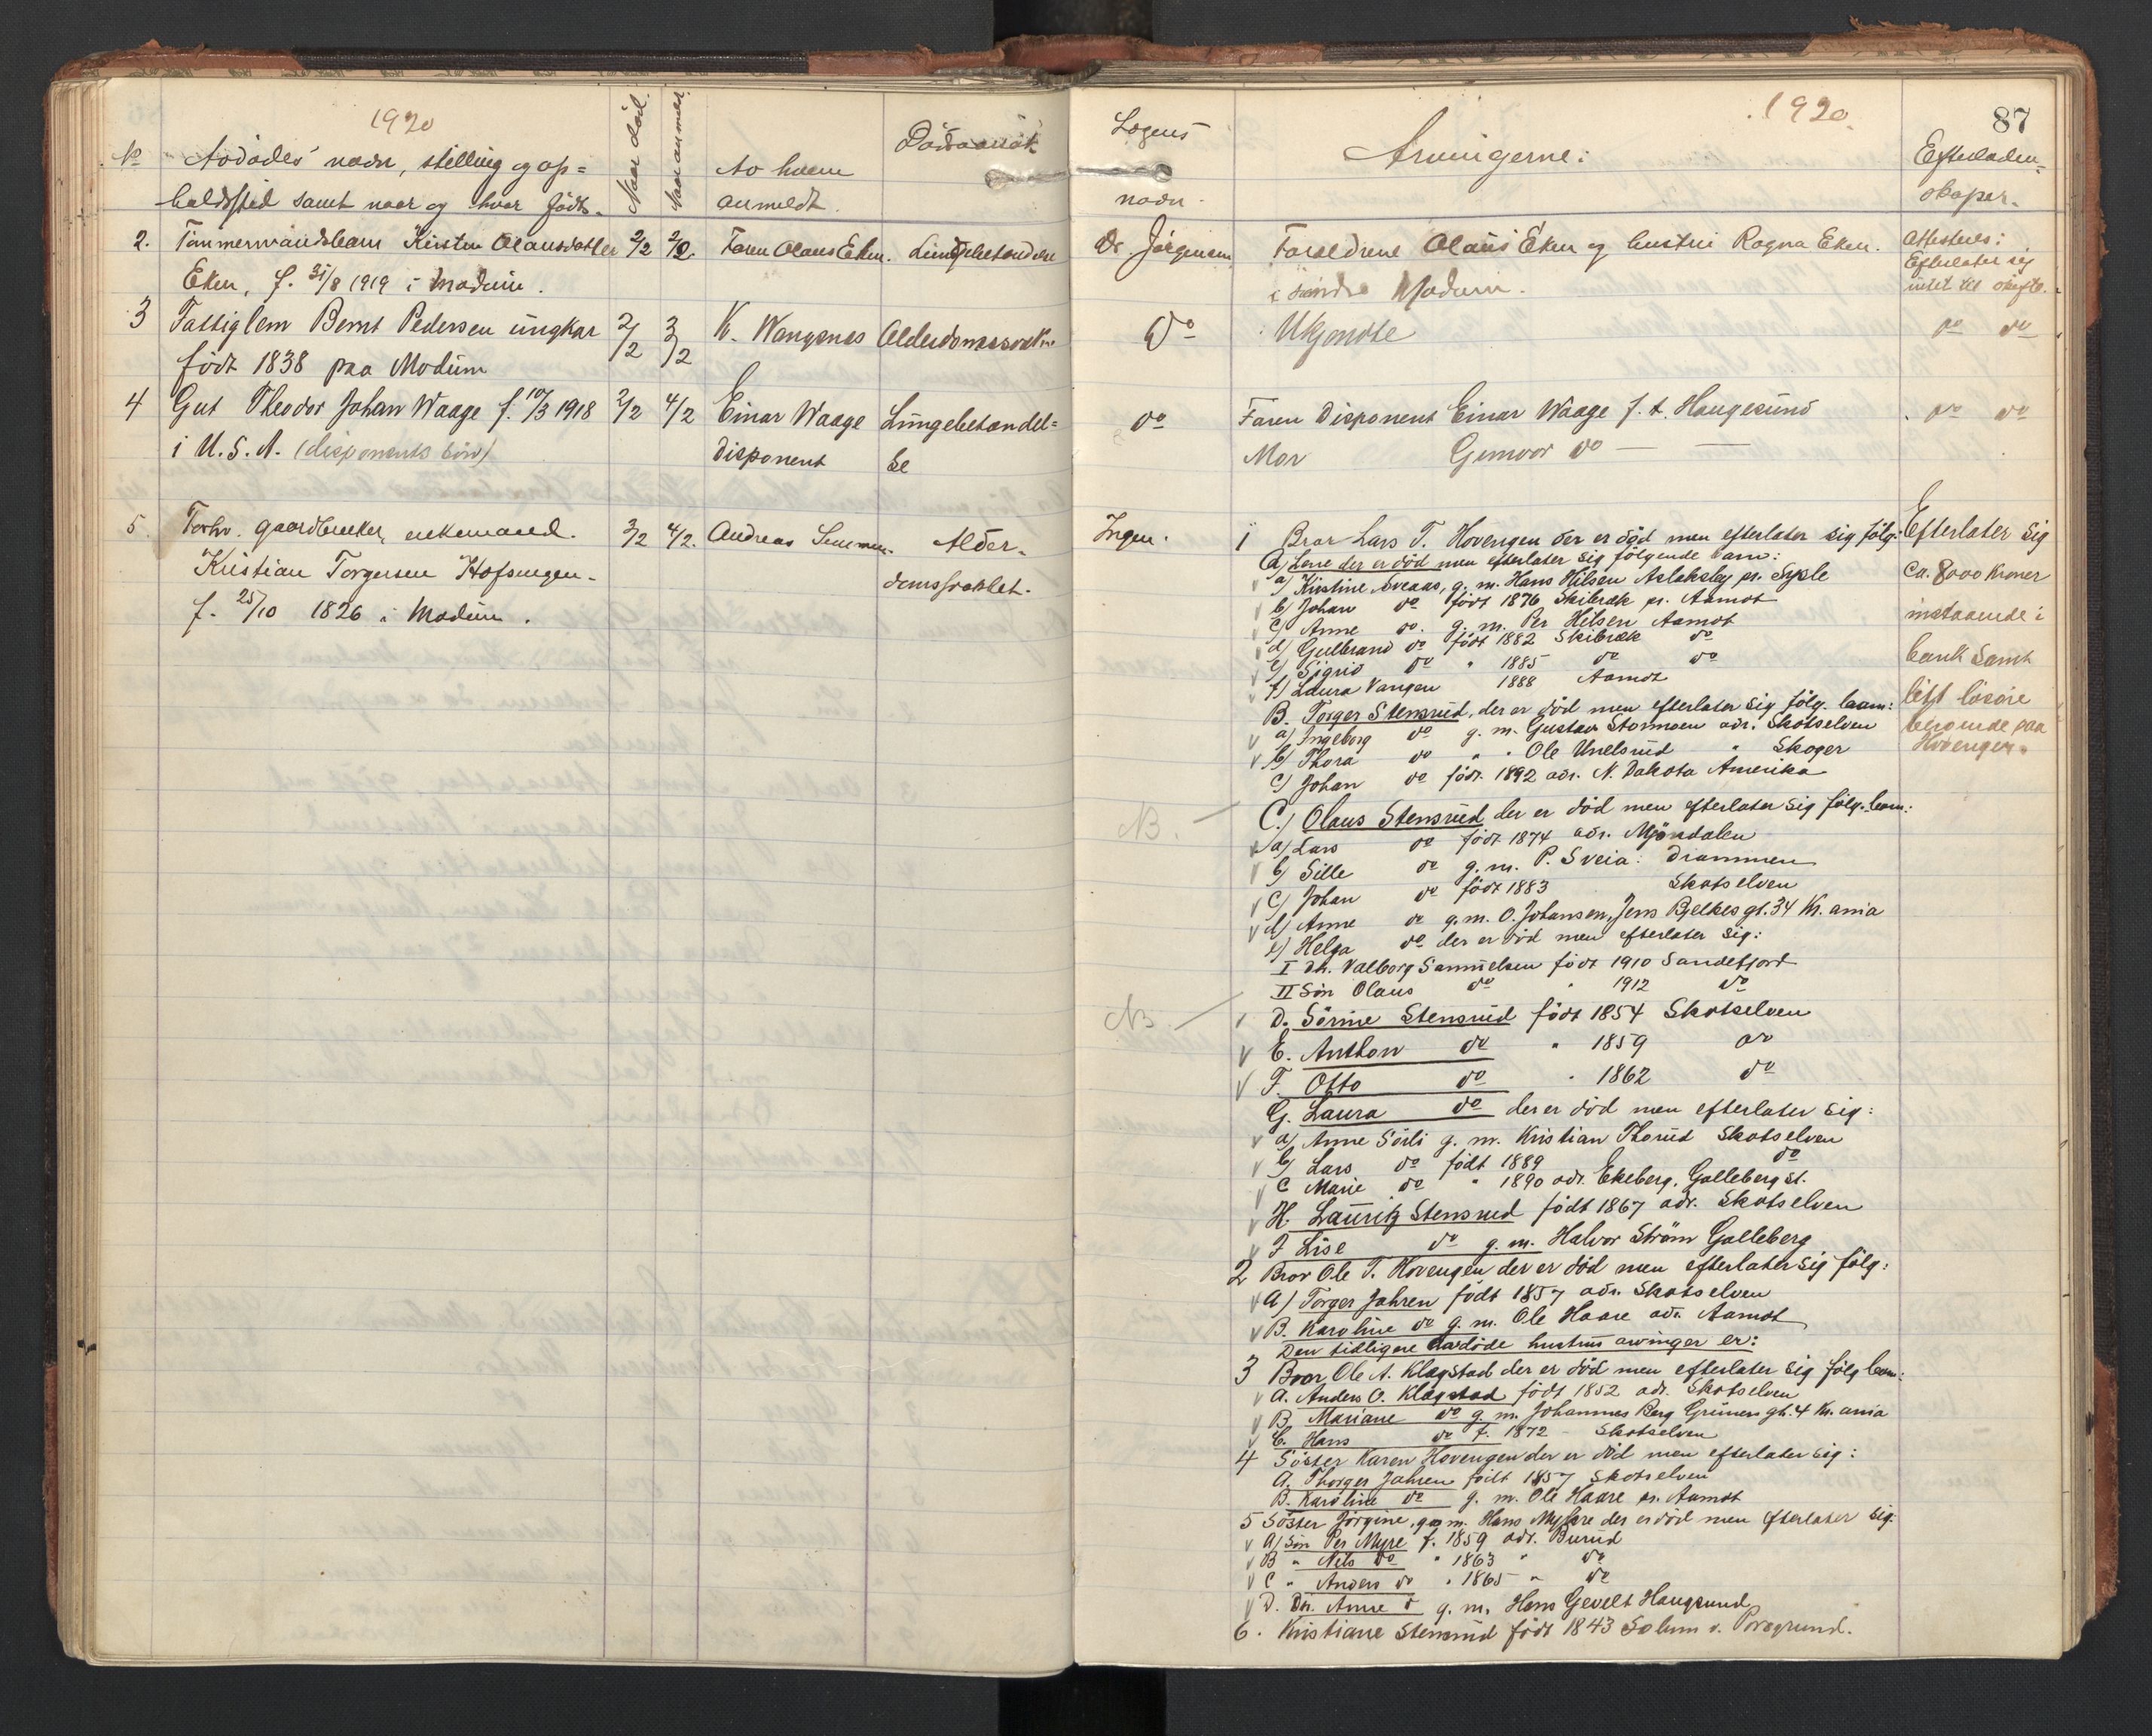 1920
No Avdødes navn, stilling og op=
holdssted samt naar og hvor født.
Naar død.
Naar anmeldt.
Av hvem
anmeldt.
Dødsaarsak
2. Tømmermandsbarn Kirsten Olausdatter 2/2 2/2. Faren Olaus Eken. Lungebetændelse
Eken, f. 31/8 1919 i Modum.
3 Fattiglem Bernt Pedersen ungkar 2/2 3/2 K. Wangenes Alderdomssvakhet
født 1838 paa Modum
4 Gut Theodor Johan Waage f. 10/3 1918 2/2 4/2 Einar Waage Lungebetændel=
i U.S.A. (disponents søn) disponent se
5. Forhv. gaardbruker, enkemand. 3/2 4/2. Andreas Alder-
Kristian Torgersen Hofsengen. domssvakhet.
f. 25/10 1826 i Modum.
1920.
87
Lægens
navn.
Arvingerne:
Efterladen-
skaper.
Dr. Jørgensen Forældrene Olaus Eken og hustru Ragna Eken. Attesteres:
i søndre Modum. Efterlater sig
intet til skifte.
Do Ukjendte do do
do Faren Disponent Einar Waage f. t. Haugesund do do
Mor Gunvor do —
Ingen. 1 Bror Lars T. Hovengen der er død men efterlater sig følg: Efterlater sig
A, Lene der er død men efterlater sig følgende barn: ca. 8000 kroner
a) Kirstine Sveaas, g. m. Hans Hilsen Aslaksby pr. Sysle
b) Johan do født 1876 Skibræk pr. Aamot indstaaende i
c) Anne do. g. m. Per Hilsen Aamot
d) Gulbrand do født 1882 Skibræk do
e) Sigrid do " 1885 do do bank samt
f) Laura Vangen 1888 Aamot
B. Torger Stensrud, der er død men efterlater sig følg. barn: litt løsøre
a) Ingeborg do g. m. Gustav Stormoen adr. Skotselven beroende paa
b) Thora do " " Ole Unelsrud " Skoger Hovengen.
c) Johan do født 1892 adr. N. Dakota Amerika
NB. C.) Olaus Stensrud der er død men efterlater sig følg. barn:
a) Lars do født 1874 adr. Mjøndalen
b) Sille do g. m. P. Sveia: Drammen
c) Johan do født 1883 Skotselven
d) Anne do g. m. O. Johansen, Jens Bjelkes gt. 34 Kr. ania
e) Helga do der er død men efterlater sig:
I Dtr. Valborg Samuelsen født 1910 Sandefjord
II Søn Olaus do " 1912 do
NB. D. Sørine Stensrud født 1854 Skotselven
E. Anthon do " 1859 do
F. Otto do " 1862 do
G. Laura do der er død men efterlater sig:
a) Anne Sørli g. m. Kristian Thorud Skotselven
b) Lars do født 1889 do
c Marie do " 1890 adr. Ekeberg, Galleberg st.
H. Lauritz Stensrud født 1867 adr. Skotselven
I Lise do g. m. Halvor Strøm Galleberg
2 Bror Ole T. Hovengen der er død men efterlater sig følg:
A) Torger Jahren født 1857 adr. Skotselven
B. Karoline do g. m. Ole Haare adr. Aamot
Den tidligere avdøde hustrus arvinger er:
3 Bror Ole A. Klagstad der er død men efterlater sig følg barn:
A. Anders O. Klagstad født 1852 adr. Skotselven
B. Mariane do g. m. Johannes Berg Grüners gt. 4 Kr. ania
C. Hans do f. 1872 - Skotselven
4 Søster Karen Hovengen der er død men efterlater sig:
A. Thorger Jahren født 1857 Skotselven
B. Karoline do g. m. Ole Haare pr. Aamot
5 Søster Jørgine, g. m. Hans Myhre der er død men efterlater sig:
A) Søn Per Myre f. 1859 adr. Burud
B " Nils do " 1863 " do
C " Anders do " 1865 " do
D. Dtr. Anne d g. m. Hans Gevelt Haugsund
6. Kristiane Stensrud født 1843 Solum v. Porsgrund.